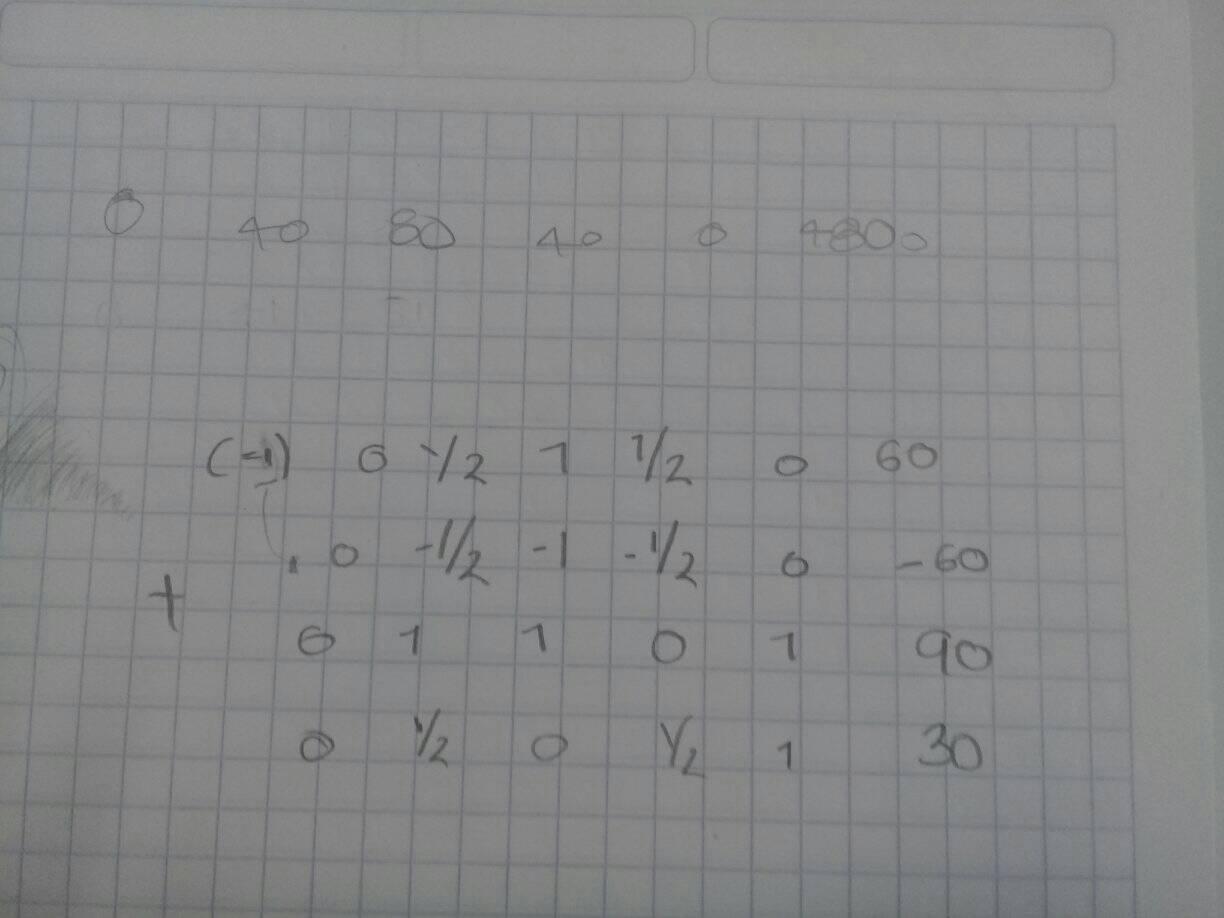 0 40 80 40 0 4800
(-1) 0 1/2 1 1/2 0 60
0 -1/2 -1 -1/2 0 -60
+
0 1 1 0 1 90
0 1/2 0 1/2 1 30